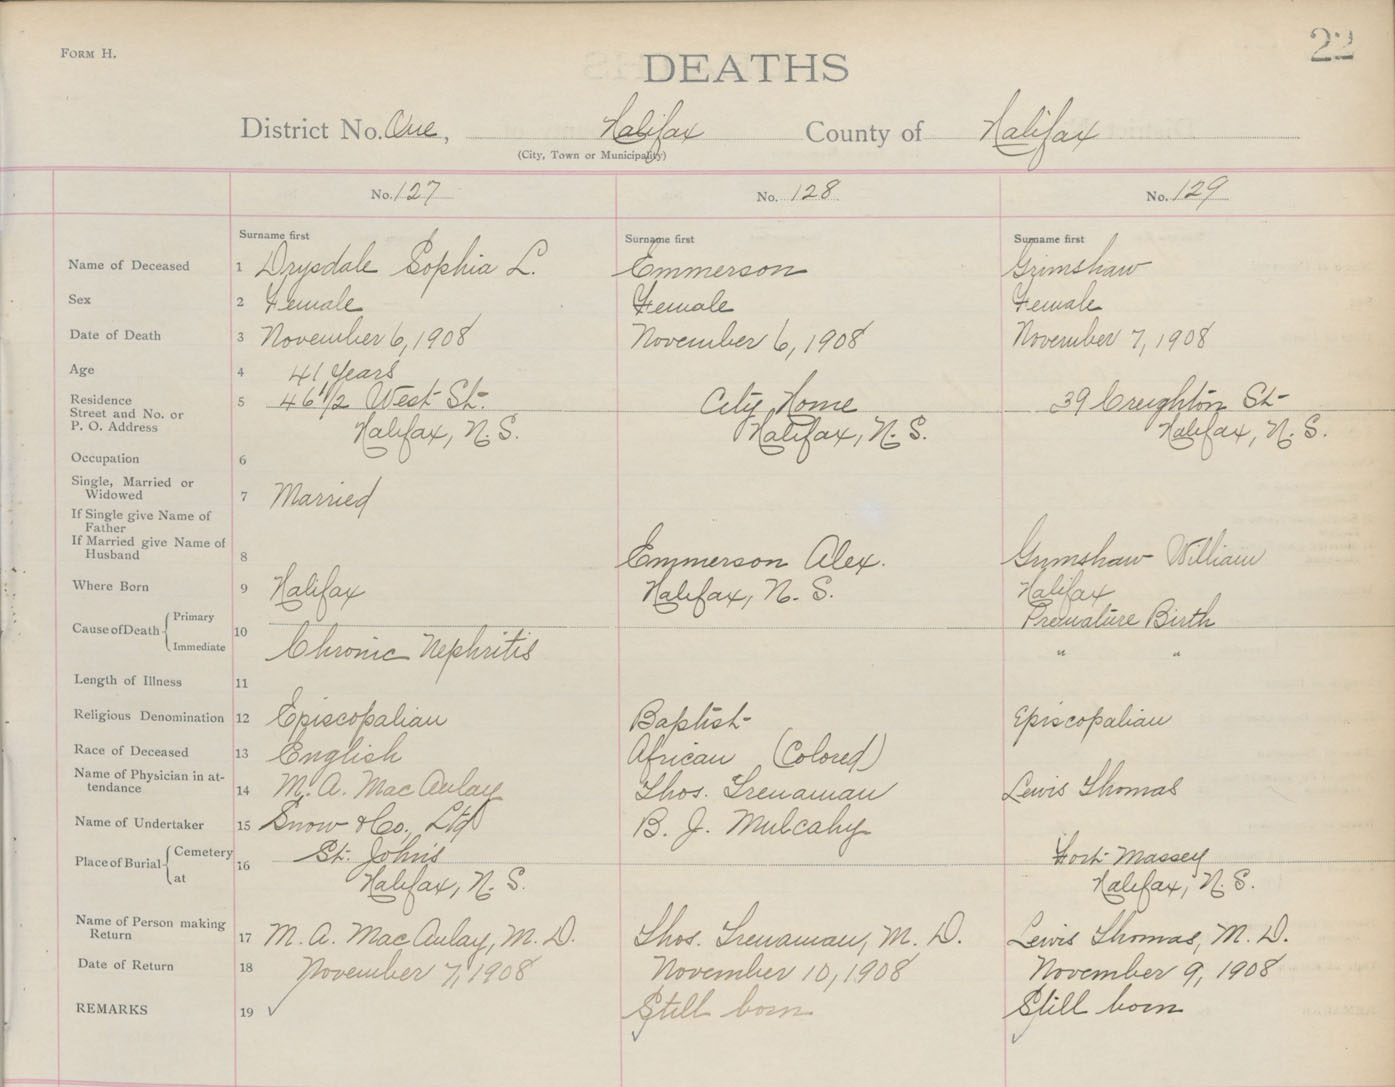 FORM H.
22
DEATHS
District No. One, Halifax County of Halifax
(City, Town or Municipality)
No. 127 No. 128 No. 129
Surname first Surname first Surname first
Name of Deceased 1 Drysdale Sophia L. Emmerson Grimshaw
Sex 2 Female Female Female
Date of Death 3 November 6, 1908 November 6, 1908 November 7, 1908
Age 4 41 Years
Residence 5 46 1/2 West St. City Home 39 Creighton St
Street and No. or
P. O. Address Halifax, N.S. Halifax, N.S. Halifax, N.S.
Occupation 6
Single, Married or
Widowed 7 Married
If Single give Name of
Father
If Married give Name of
Husband 8 Emmerson Alex. Grimshaw William
Where Born 9 Halifax Halifax, N.S. Halifax
Cause of Death { Primary Premature Birth
10
Immediate Chronic Nephritis " "
Length of Illness 11
Religious Denomination 12 Episcopalian Baptist Episcopalian
Race of Deceased 13 English African (Colored)
Name of Physician in at-
tendance 14 M. A. MacAulay Thos. Trenaman Lewis Thomas
Name of Undertaker 15 Snow & Co., Ltd B. J. Mulcahy
Place of Burial { Cemetery St. John's Fort Massey
16
at Halifax, N.S. Halifax, N.S.
Name of Person making
Return 17 M. A. MacAulay, M.D. Thos. Trenaman, M.D. Lewis Thomas, M.D.
Date of Return 18 November 7, 1908 November 10, 1908 November 9, 1908
REMARKS 19 ✓ Still born Still born
✓ ✓